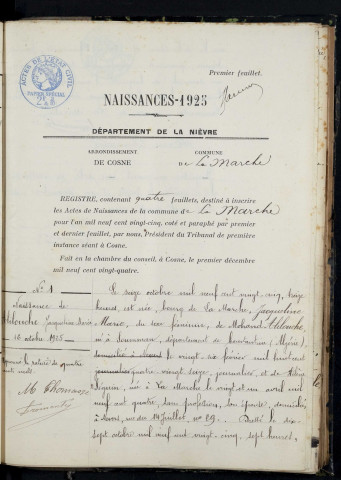 Premier feuillet.
ACTES DE L'ÉTAT CIVIL
PAPIER SPÉCIAL
NAISSANCES-1925
DÉPARTEMENT DE LA NIÈVRE
ARRONDISSEMENT
DE COSNE
COMMUNE
DE La Marche
REGISTRE, contenant quatre feuillets, destiné à inscrire
les Actes de Naissances de la commune de La Marche
pour l'an mil neuf cent vingt-cinq, coté et paraphé par premier
et dernier feuillet, par nous, Président du Tribunal de première
instance séant à Cosne.
Fait en la chambre du conseil, à Cosne, le premier décembre
mil neuf cent vingt-quatre.
N° 1
Naissance de
Jacqueline Marie
16 octobre 1925
Le seize octobre mil neuf cent vingt cinq, treize
heures, est née, bourg de La Marche, Jacqueline
Marie, du sexe féminin, de Mohamed
né à département de Constantine (Algérie)
le vingt six février mil huit cent
quatre vingt seize, journalier, et de
née à La Marche le vingt et un avril mil
neuf cent quatre, sans profession, son épouse, domiciliés
à rue du 14 Juillet, n° 29. Dressé le dix
sept octobre mil neuf cent vingt cinq, sept heures,